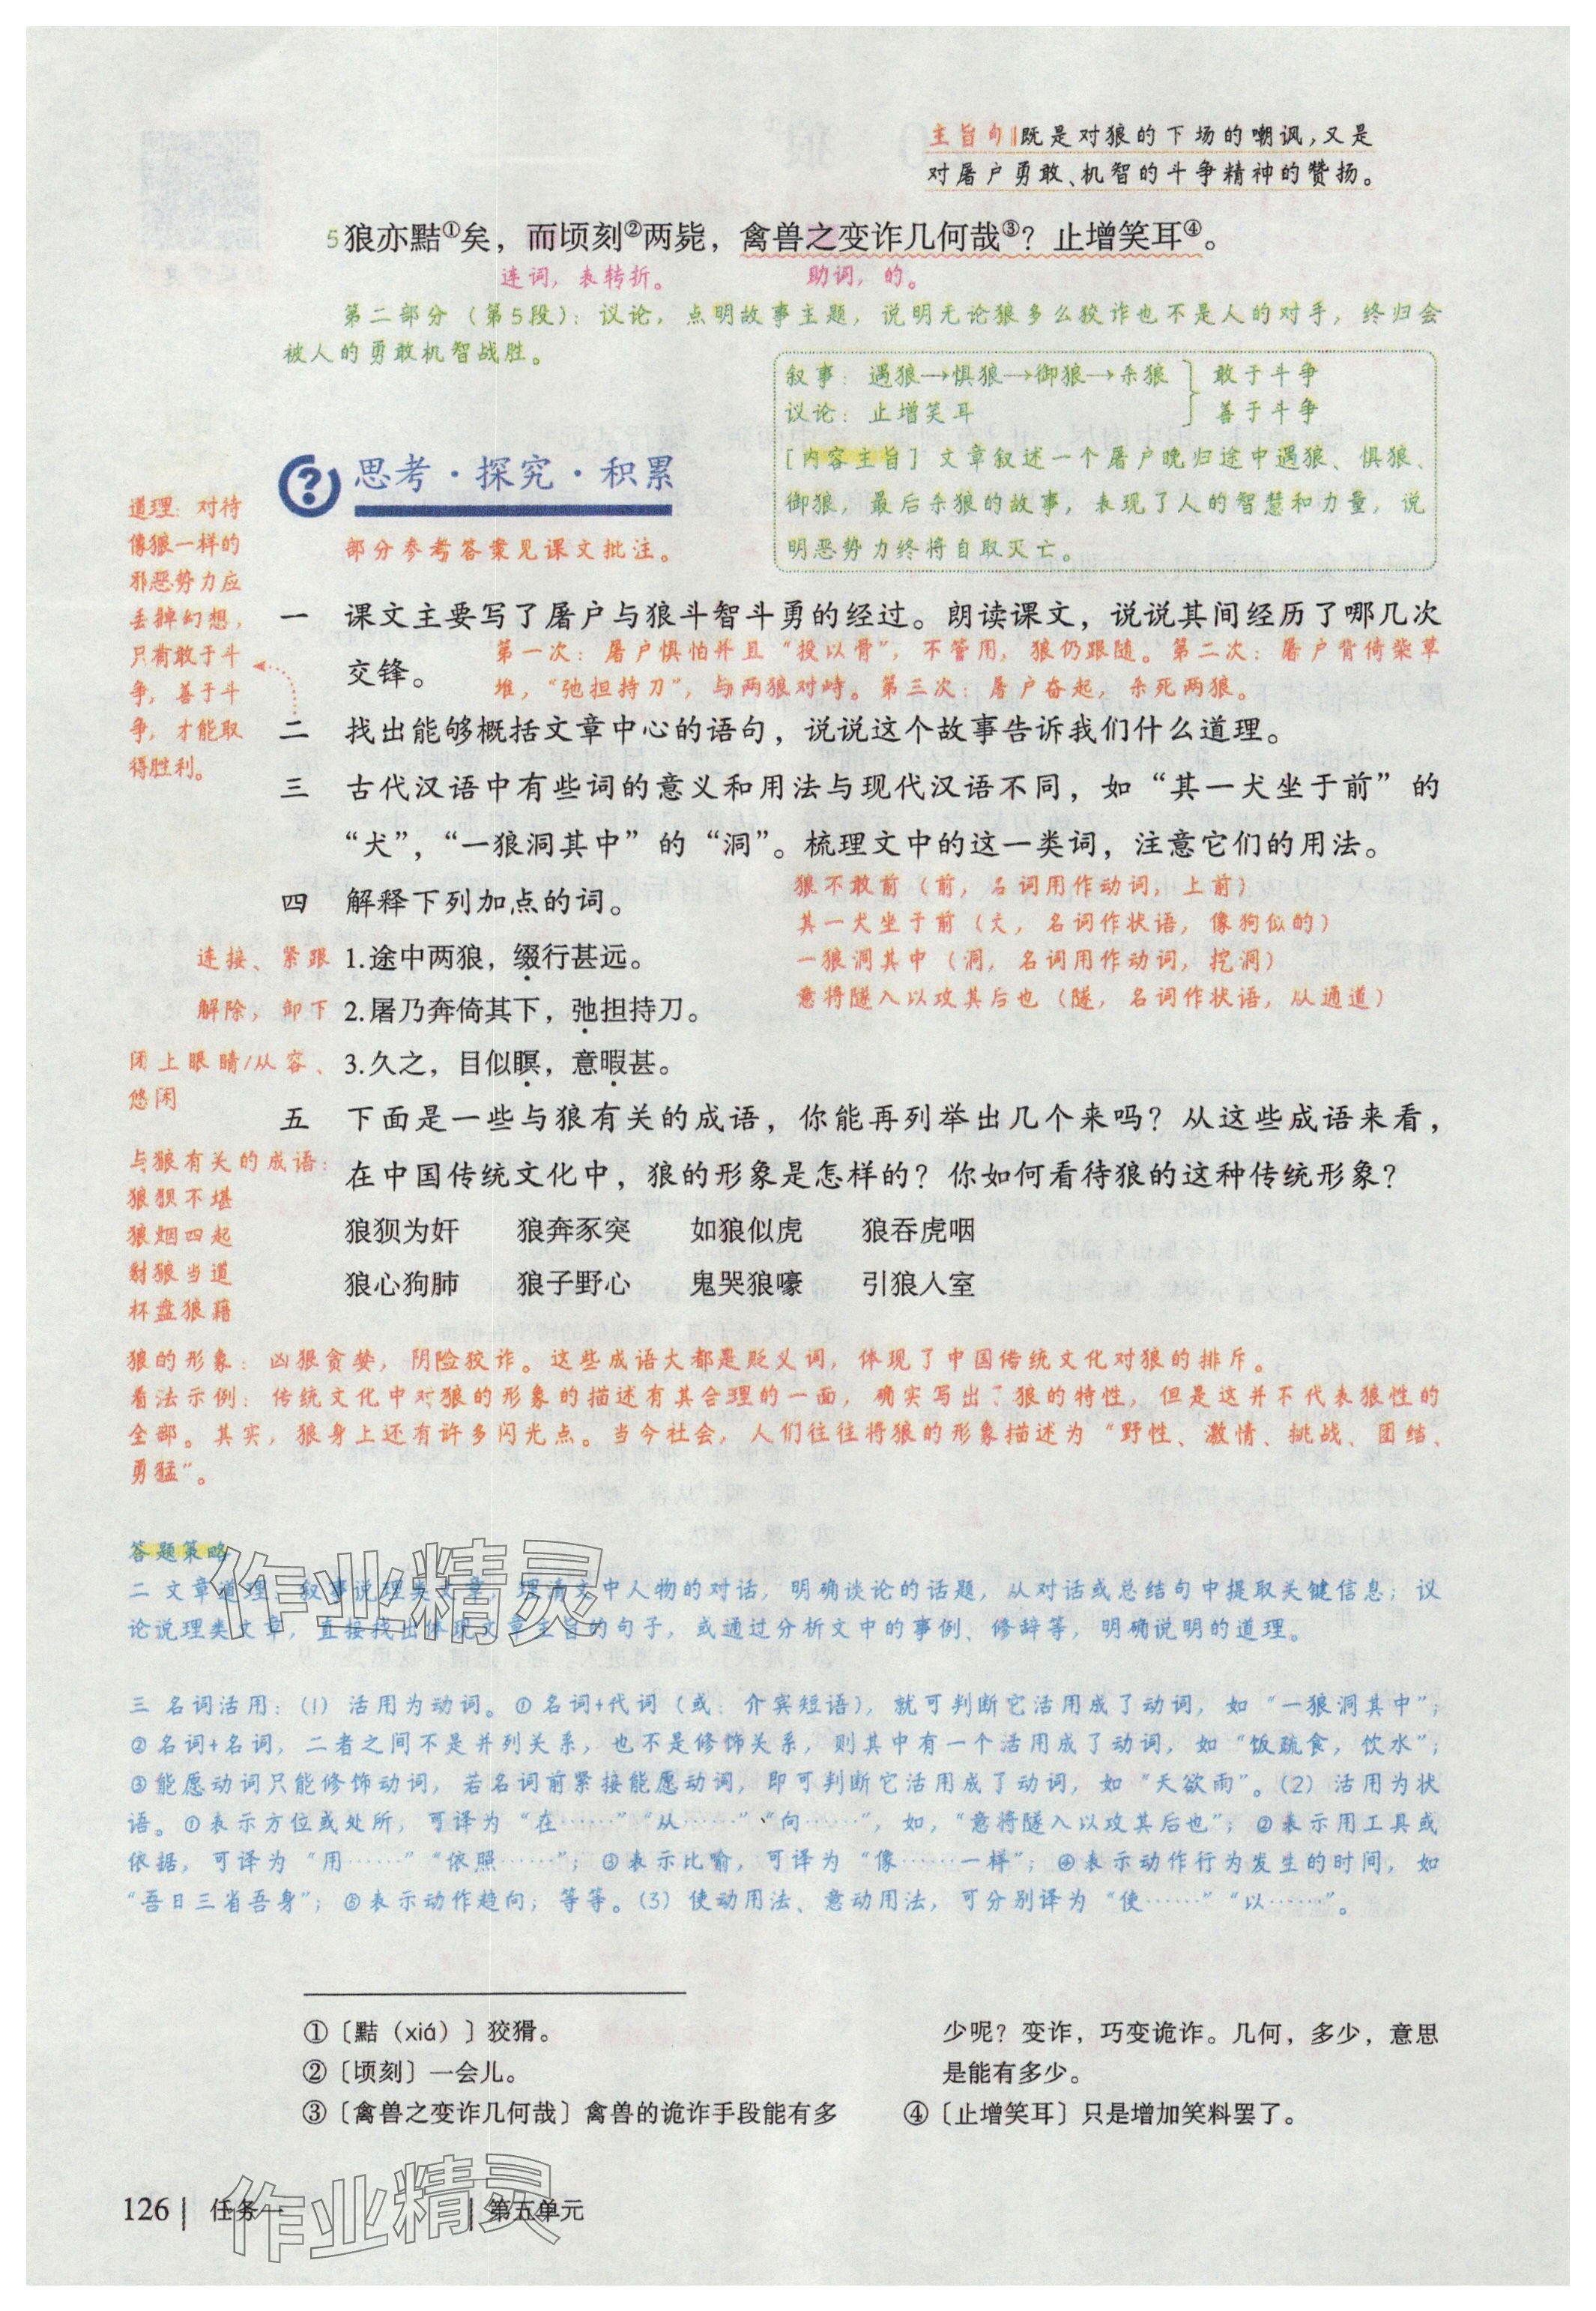 主旨句 既是对狼的下场的嘲讽,又是
对屠户勇敢、机智的斗争精神的赞扬。
5狼亦黠①矣，而顷刻②两毙，禽兽之变诈几何哉③？止增笑耳④。
连词，表转折。 助词，的。
第二部分（第5段）：议论，点明故事主题，说明无论狼多么狡诈也不是人的对手，终归会
被人的勇敢机智战胜。
叙事：遇狼→惧狼→御狼→杀狼 敢于斗争
议论：止增笑耳 善于斗争
[内容主旨] 文章叙述一个屠户晚归途中遇狼、惧狼、
御狼，最后杀狼的故事，表现了人的智慧和力量，说
明恶势力终将自取灭亡。
思考·探究·积累
部分参考答案见课文批注。
道理：对待
像狼一样的
邪恶势力应
丢掉幻想，
只有敢于斗
争，善于斗
争，才能取
得胜利。
一 课文主要写了屠户与狼斗智斗勇的经过。朗读课文，说说其间经历了哪几次
交锋。
第一次：屠户惧怕并且“投以骨”，不管用，狼仍跟随。第二次：屠户背倚柴草
堆，“弛担持刀”，与两狼对峙。第三次：屠户奋起，杀死两狼。
二 找出能够概括文章中心的语句，说说这个故事告诉我们什么道理。
三 古代汉语中有些词的意义和用法与现代汉语不同，如“其一犬坐于前”的
“犬”，“一狼洞其中”的“洞”。梳理文中的这一类词，注意它们的用法。
狼不敢前（前，名词用作动词，上前）
其一犬坐于前（犬，名词作状语，像狗似的）
一狼洞其中（洞，名词用作动词，挖洞）
意将隧入以攻其后也（隧，名词作状语，从通道）
四 解释下列加点的词。
连接、紧跟 1.途中两狼，缀行甚远。
解除，卸下 2.屠乃奔倚其下，弛担持刀。
闭上眼睛/从容、 3.久之，目似瞑，意暇甚。
悠闲
五 下面是一些与狼有关的成语，你能再列举出几个来吗？从这些成语来看，
在中国传统文化中，狼的形象是怎样的？你如何看待狼的这种传统形象？
狼狈为奸 狼奔豕突 如狼似虎 狼吞虎咽
狼心狗肺 狼子野心 鬼哭狼嚎 引狼入室
与狼有关的成语：
狼狈不堪
狼烟四起
豺狼当道
杯盘狼藉
狼的形象：凶狠贪婪，阴险狡诈。这些成语大都是贬义词，体现了中国传统文化对狼的排斥。
看法示例：传统文化中对狼的形象的描述有其合理的一面，确实写出了狼的特性，但是这并不代表狼性的
全部。其实，狼身上还有许多闪光点。当今社会，人们往往将狼的形象描述为“野性、激情、挑战、团结、
勇猛”。
答题策略
二 文章道理：叙事说理类文章，理清文中人物的对话，明确谈论的话题，从对话或总结句中提取关键信息；议
论说理类文章，直接找出体现文章主旨的句子，或通过分析文中的事例、修辞等，明确说明的道理。
三 名词活用：（1）活用为动词。①名词+代词（或：介宾短语），就可判断它活用成了动词，如“一狼洞其中”；
②名词+名词，二者之间不是并列关系，也不是修饰关系，则其中有一个活用成了动词，如“饭疏食，饮水”；
③能愿动词只能修饰动词，若名词前紧接能愿动词，即可判断它活用成了动词，如“天欲雨”。（2）活用为状
语。①表示方位或处所，可译为“在……”“从……”“向……”，如，“意将隧入以攻其后也”；②表示用工具或
依据，可译为“用……”“依照……”；③表示比喻，可译为“像……一样”；④表示动作行为发生的时间，如
“吾日三省吾身”；⑤表示动作趋向；等等。（3）使动用法、意动用法，可分别译为“使……”“以……”。
①〔黠（xiá）〕狡猾。
②〔顷刻〕一会儿。
③〔禽兽之变诈几何哉〕禽兽的诡诈手段能有多
少呢？变诈，巧变诡诈。几何，多少，意思
是能有多少。
④〔止增笑耳〕只是增加笑料罢了。
126 | 任务一 | 第五单元
作业精灵
作业精灵